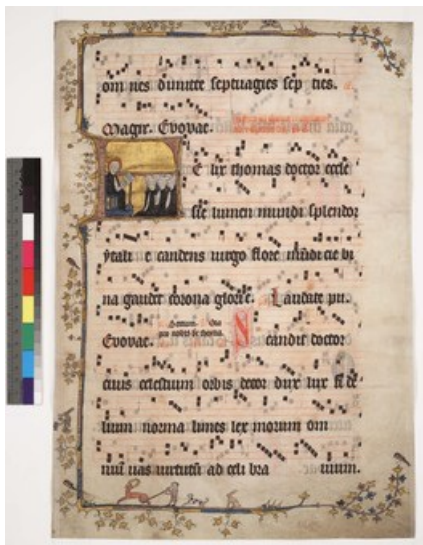 om nes dimitte septuagies sep ties.
Magir. Evovae.
Fe lix thomas doctor eccle
sie lumen mundi splendor
ytali e candens virgo flore mundicie bi
na gaudet corona glorie. Laudate pu.
Evovae. Scandit doctor
civis celestium orbis decor dux lux fi de
lium norma limes lex morum om
nium vas virtutum ad celi bra vium.